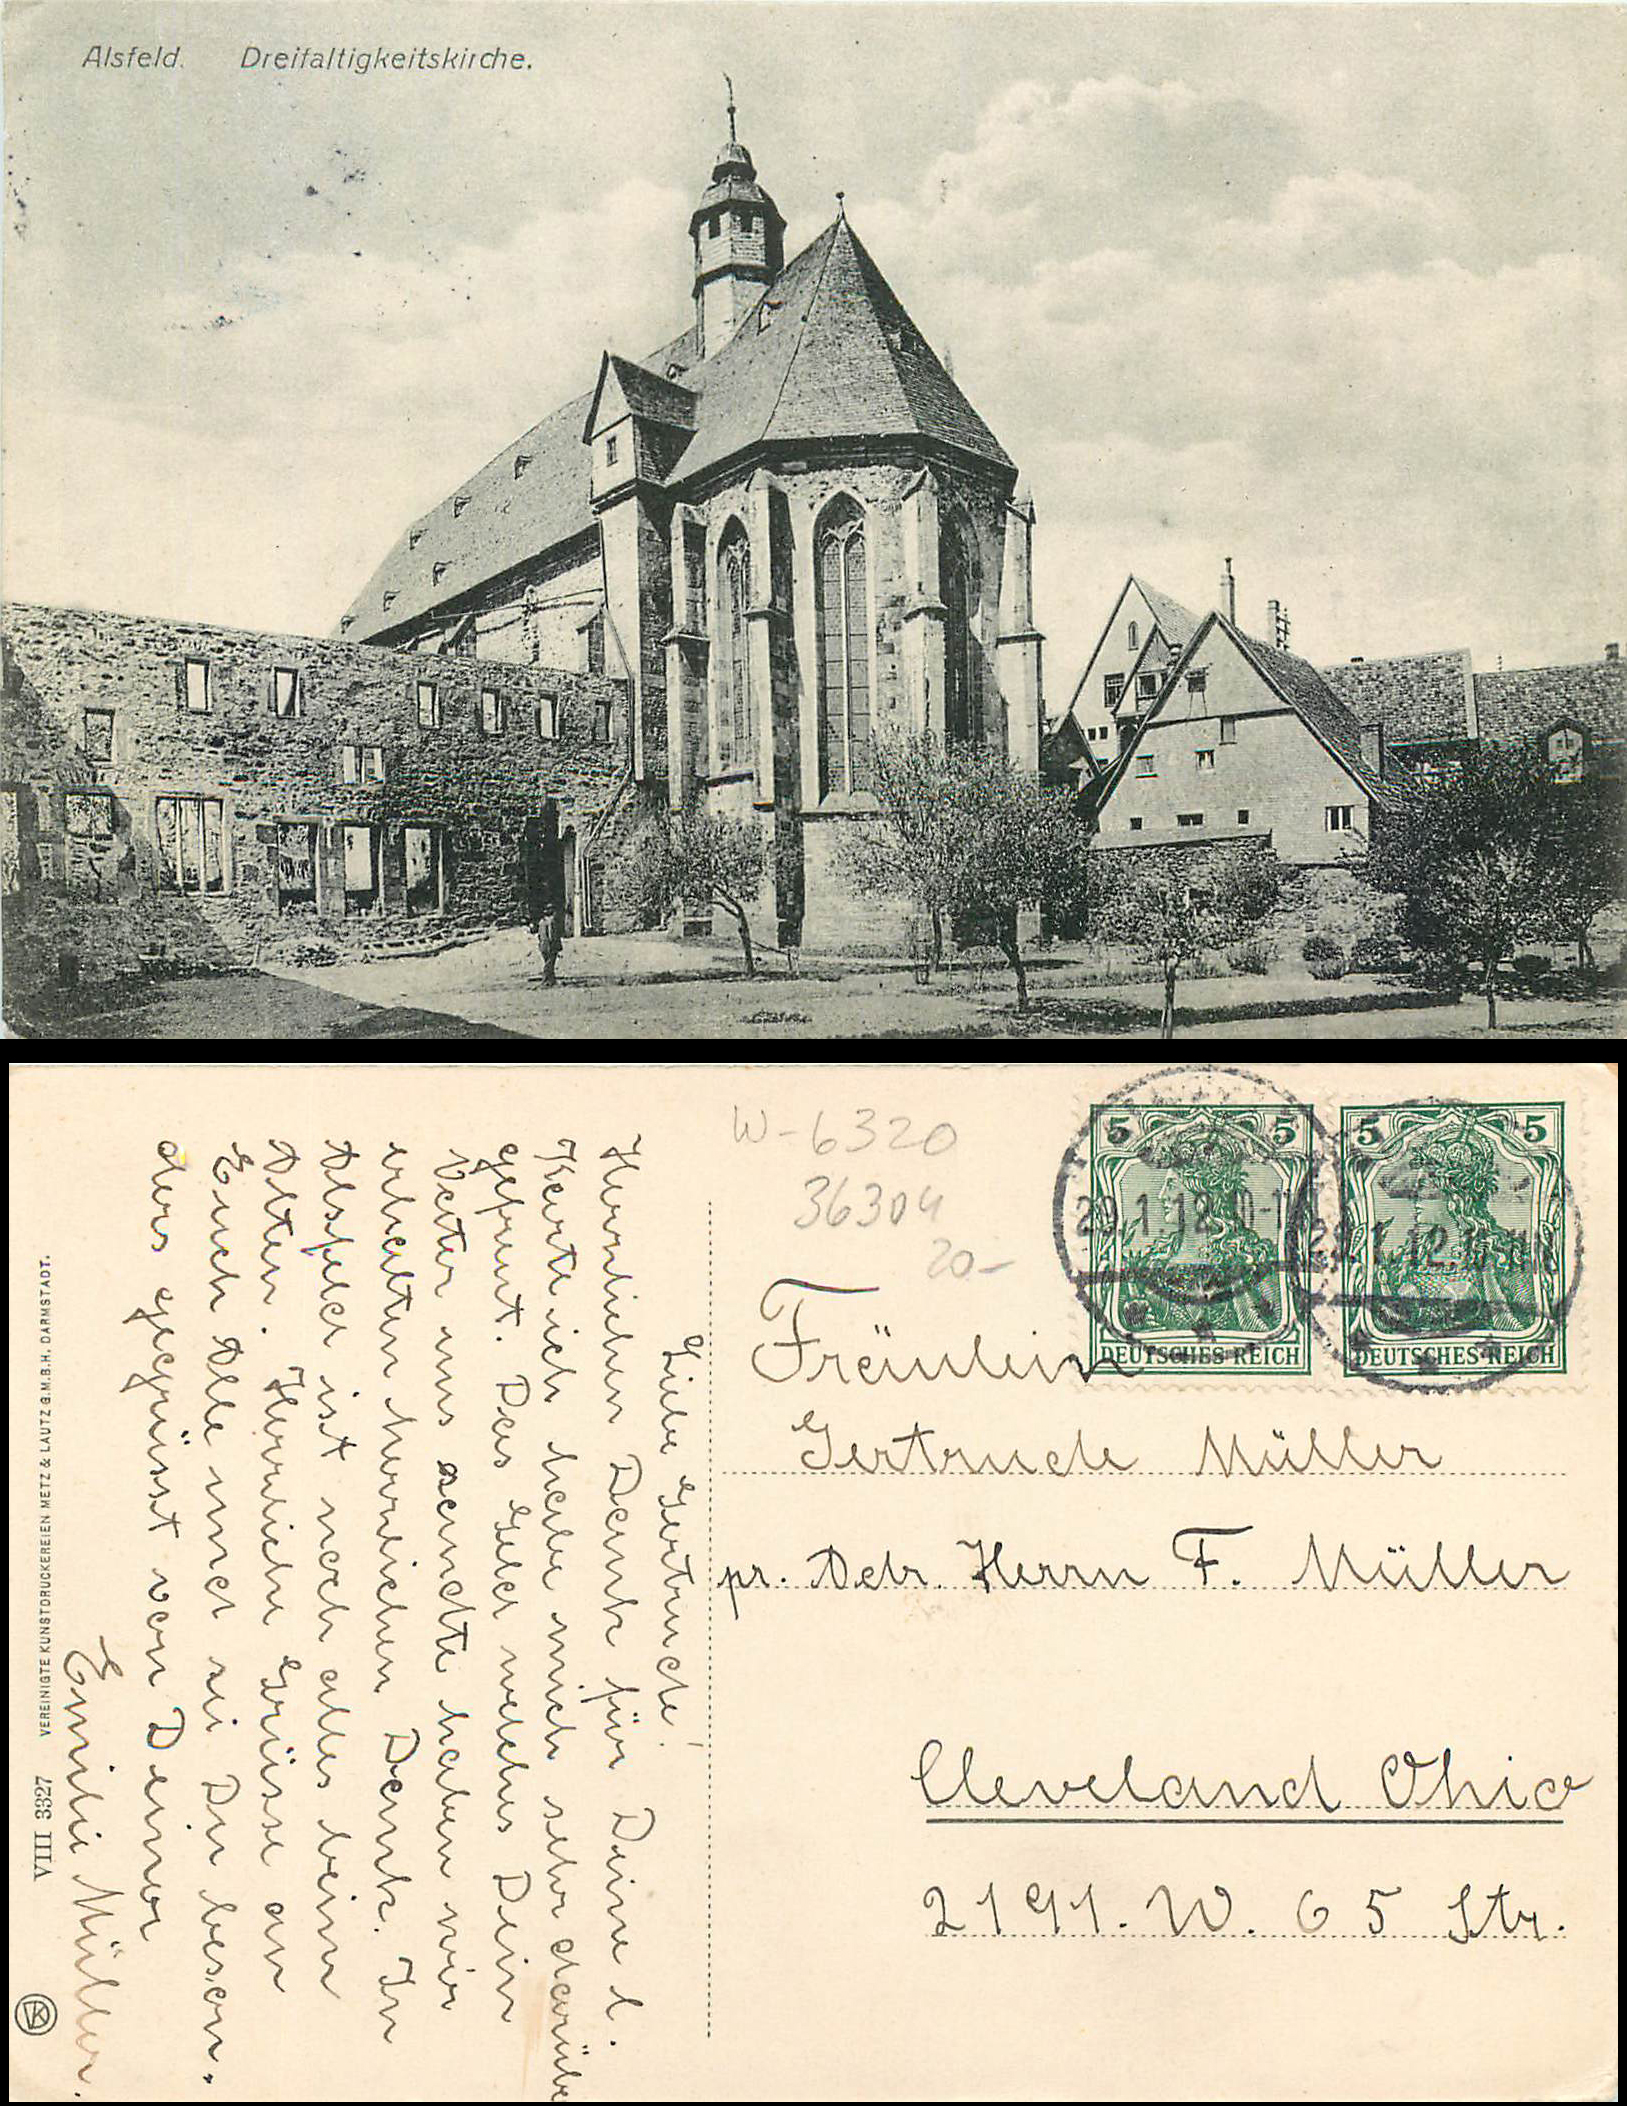 Alsfeld. Dreifaltigkeitskirche.
W-6320
36304
20-
5 5
5 5
29.1.12.10-11
.1.12.
DEUTSCHES REICH
DEUTSCHES REICH
Fräulein
Gertrude Müller
pr. Adr. Herrn F. Müller
Cleveland Ohio
2191. W. 65 Str.
Liebe Gertrude!
Herzlichen Dank für Deine l.
Karte ich habe mich sehr darüber
gefreut. Das Geld welches Dein
Vater uns sandte haben wir
erhalten herzlichen Dank. In
Alsfeld ist noch alles beim
Alten. Herzliche Grüsse an
Euch Alle und sei Du beson„
ders gegrüsst von Deiner
Emilie Müller.
VIII 3327 VEREINIGTE KUNSTDRUCKEREIEN METZ & LAUTZ G.M.B.H. DARMSTADT.
VK